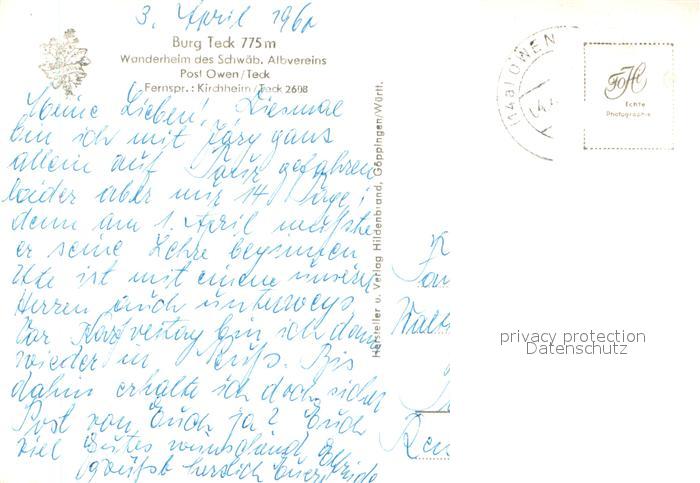 3. April 196
Burg Teck 775 m
Wanderheim des Schwäb. Albvereins
Post Owen/Teck
Fernspr.: Kirchheim/Teck 2698
Meine Lieben! Diesmal
bin ich mit ganz
allein auf Tour gefahren
leider aber nur 14 Tage!
denn am 1. April mußte
er seine Lehre beginnen
Ute ist mit einem unserer
Herren auch unterwegs
Vor Karfreitag bin ich dann
wieder in
Bis
dahin erhalte ich doch sicher
Post von Euch ja? Euch
viel Gutes wünschend,
grüßt herzlich Eure Elfriede
Hersteller u. Verlag Hildenbrand, Göppingen/Württ.
(14a) OWEN
Echte
Photographie
Walt
privacy protection
Datenschutz